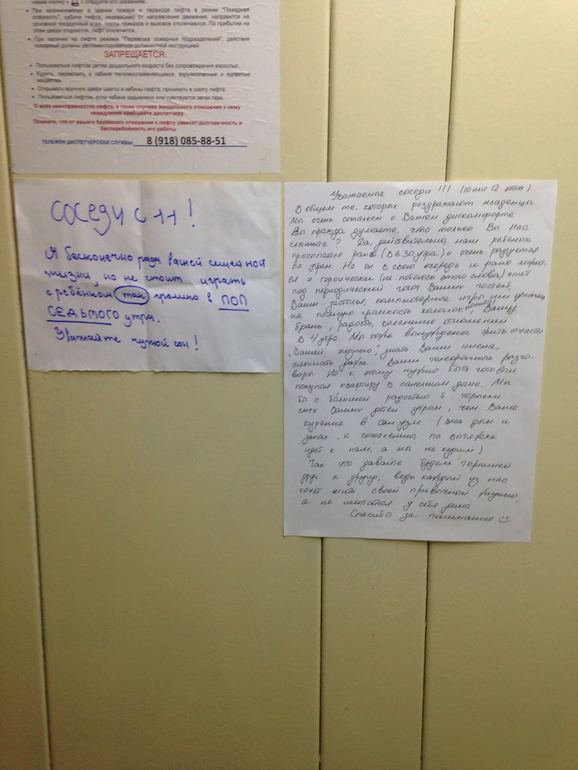 При возникновении в здании пожара и переходе лифта в режим "Пожарная
опасность", кабина лифта, независимо от направления движения, направится на
основной посадочный этаж, посты приказов и вызовов отключаются. По прибытии на
этаж двери откроются, лифт отключится.
При наличии на лифте режима "Перевозка пожарных подразделений", действия
пожарных должны регламентироваться должностной инструкцией.
ЗАПРЕЩАЕТСЯ:
Пользоваться лифтом детям дошкольного возраста без сопровождения взрослых.
Курить, перевозить в кабине легковоспламеняющиеся, взрывоопасные и ядовитые
вещества.
Открывать вручную двери шахты и кабины лифта, проникать в шахту лифта.
Пользоваться лифтом, если кабина задымлена или чувствуется запах гари.
О всех неисправностях лифта, а также случаях вандального отношения к нему
немедленно сообщайте диспетчеру.
Помните, что от вашего бережного отношения к лифту зависят долговечность и
бесперебойность его работы
ТЕЛЕФОН ДИСПЕТЧЕРСКОЙ СЛУЖБЫ 8 (918) 085-88-51
СОСЕДИ С 11!
Я бесконечно рада вашей семейной
жизни, но не стоит играть
с ребёнком так громко в ПОЛ
СЕДЬМОГО утра.
Уважайте чужой сон!
Уважаемые соседи!!! (10 или 12 этаж)
В общем те, которых раздражают младенцы.
Мы очень сожалеем о Вашем дискомфорте
Вы правда думаете, что только Вы Нас
слышите? Да, действительно, наш ребенок
просыпается рано (в 6.30 утра) и очень радуется
по утрам. Но он в свою очередь и рано ложит-
ся и героически (не побоюсь этого слова) спит
под периодический топот Ваших гостей,
Ваши застолья, компьютерные игры или фильмы
на полную громкость колонок, Вашу
брань, радость, выяснение отношений
в 4 утра. Мы тоже вынуждены жить отчасти
"Вашей жизнью", знать Ваши имена,
слышать даже Ваши телефонные разго-
воры. Но к этому нужно быть готовым
покупая квартиру в панельном доме. Мы
бы с большей радостью терпели
смех Ваших детей утром, чем Ваше
курение в сан узле (весь дым и
запах, к сожалению, по вытяжке
идёт к нам, а мы не курим)
Так что давайте будем терпимей
друг к другу, ведь каждый из нас
хочет жить своей привычной жизнью
а не у себя дома
Спасибо за понимание